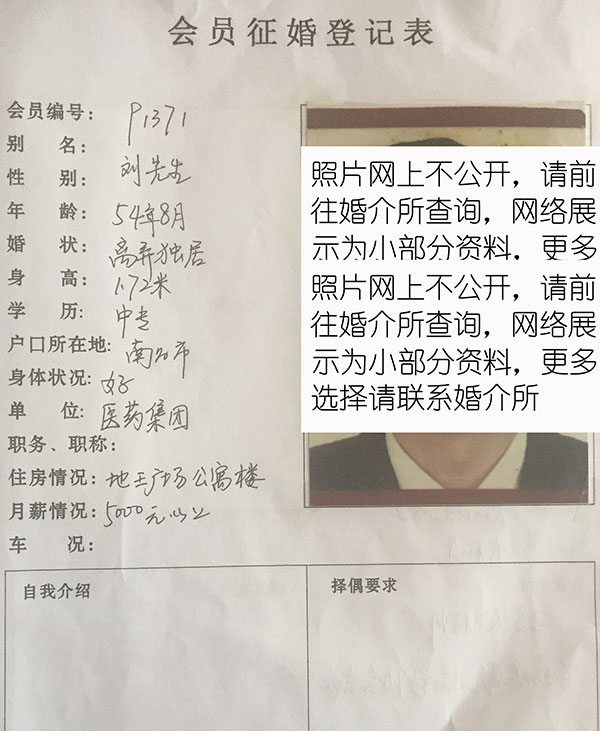 会员征婚登记表
会员编号：P1371
别 名：
性 别：刘先生
年 龄：54年8月
婚 状：离异独居
身 高：1.72米
学 历：中专
户口所在地：南昌市
身体状况：好
单 位：医药集团
职务、职称：
住房情况：地王广场公寓楼
月薪情况：5000元以上
车 况：
照片网上不公开，请前
往婚介所查询，网络展
示为小部分资料，更多
照片网上不公开，请前
往婚介所查询，网络展
示为小部分资料，更多
选择请联系婚介所
自我介绍
择偶要求